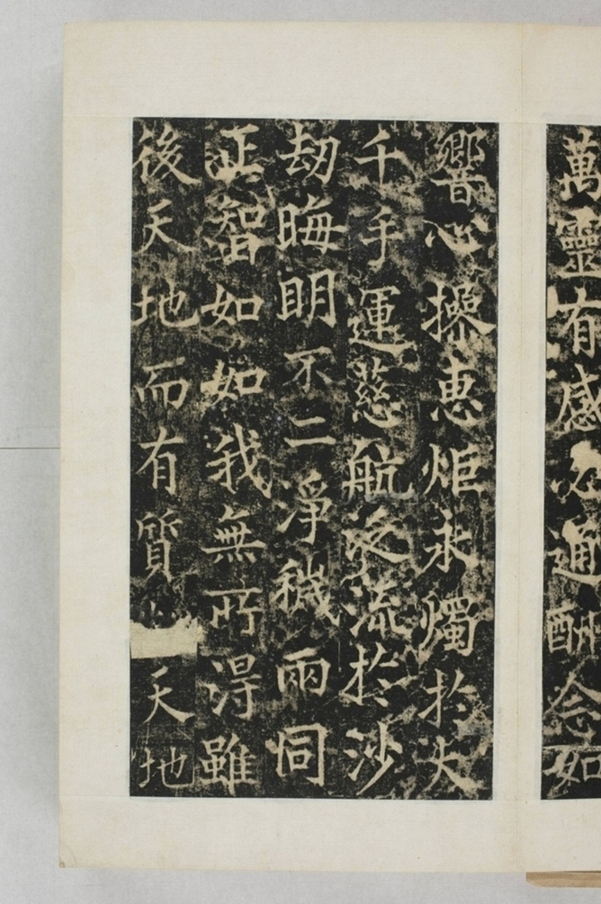 萬靈有感必通酬念如
響心操惠炬永燭於大
千手運慈航泛流於沙
劫晦明不二淨穢兩同
正智如如我無所淂雖
後天地而有質
天地